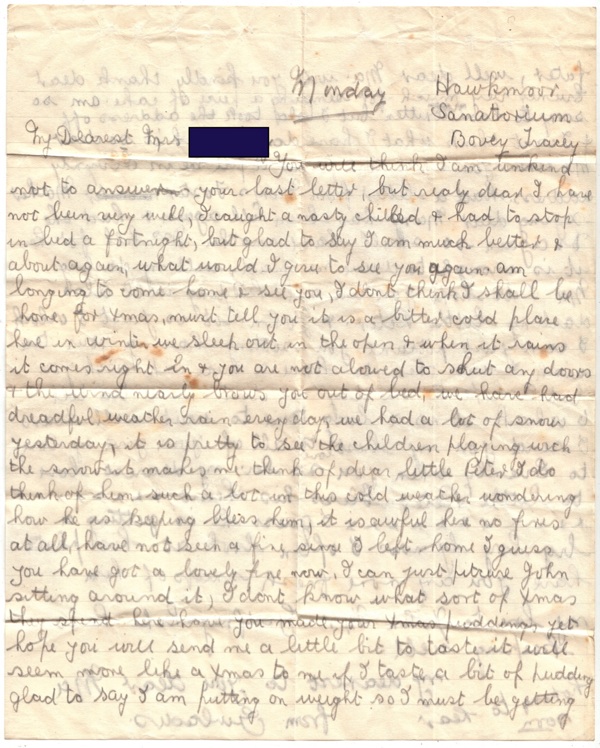 Monday
Hawkmoor
Sanatorium
Bovey Tracey
My Dearest Mrs
You will think I am unkind
not to answer your last letter, but realy dear I have
not been very well, I caught a nasty chilled & had to stop
in bed a fortnight, but glad to say I am much better &
about again, what would I give to see you again am
longing to come home & see you, I dont think I shall be
home for Xmas, must tell you it is a bitter cold place
here in winter we sleep out in the open & when it rains
it comes right in & you are not allowed to shut any doors
& the wind nearly blows you out of bed, we have had
dreadful weather rain every day, we had a lot of snow
yesterday, it is pretty to see the children playing with
the snow it makes me think of dear little Peter I do
think of him such a lot in this cold weather wondering
how he is keeping bless him, it is awful here no fires
at all, have not seen a fire since I left home I guess
you have got a lovely fire now, I can just picture John
sitting around it, I dont know what sort of Xmas
they spend here have you made your Xmas puddings yet
hope you will send me a little bit to taste it will
seem more like a Xmas to me if I taste a bit of pudding
glad to say I am putting on weight so I must be getting